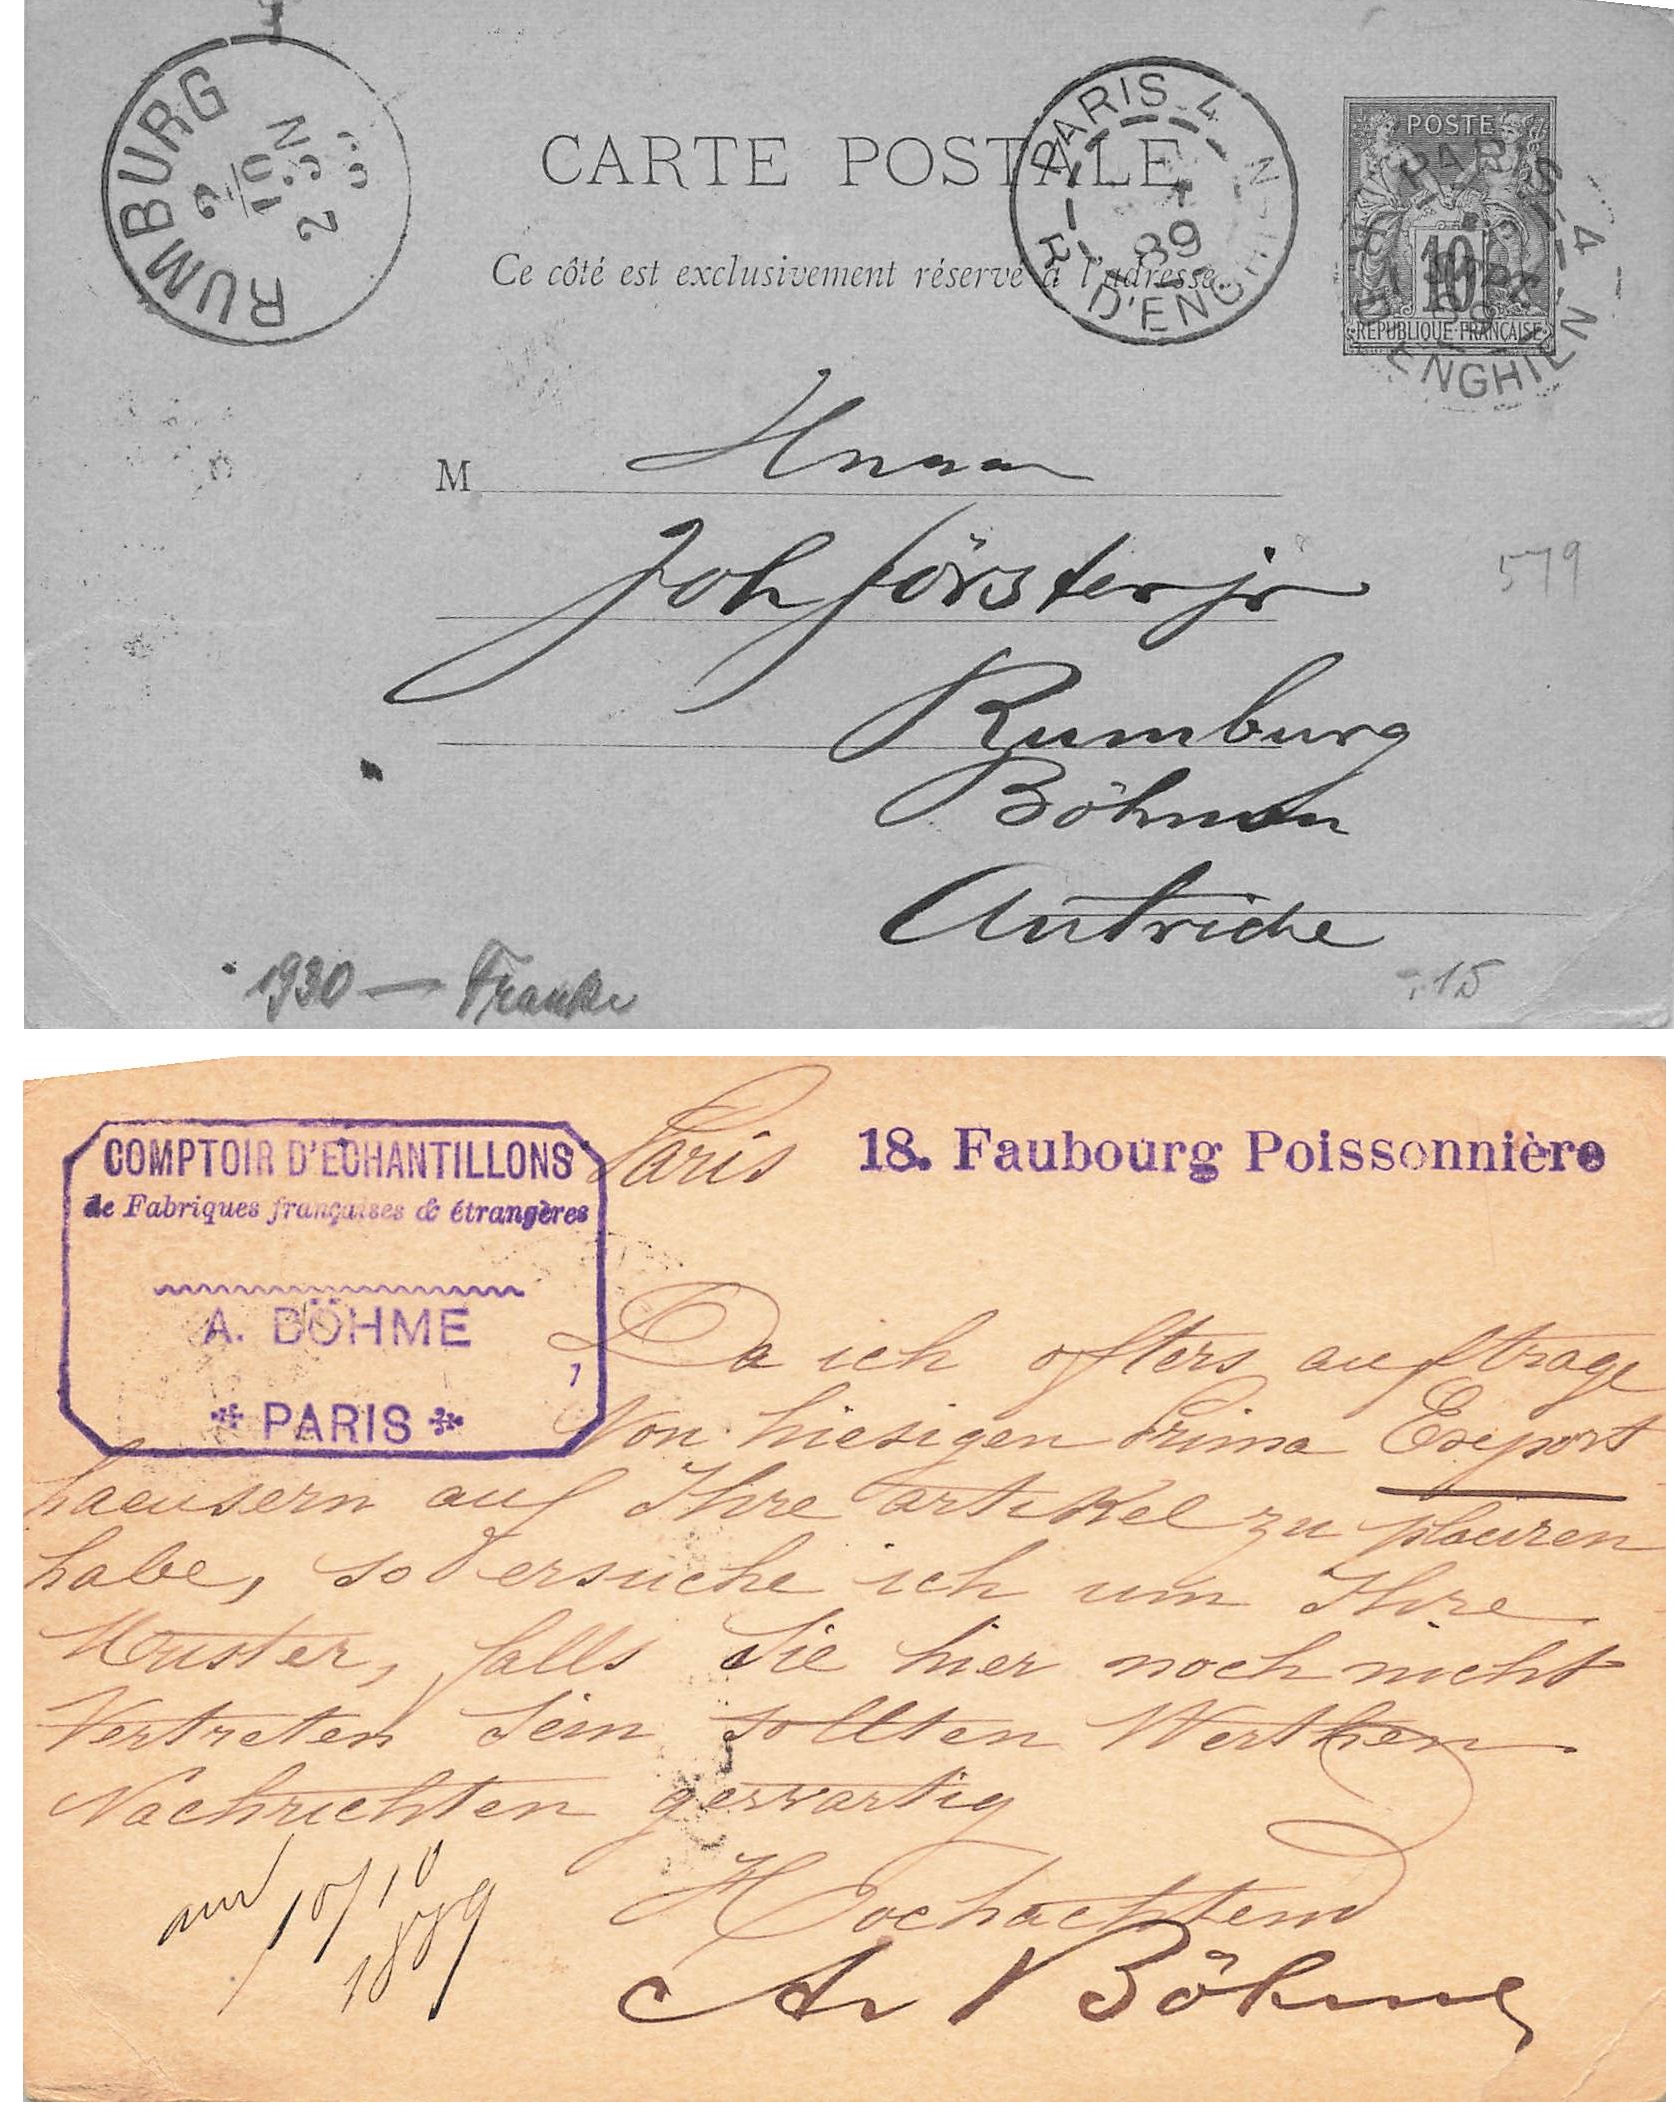 RUMBURG
2
10
2 5N
CARTE POSTALE
Ce côté est exclusivement réservé à l'adresse.
PARIS 4
89
R. D'ENGHIEN
POSTE
10
REPUBLIQUE FRANÇAISE
PARIS 4
ENGHIEN
M
Joh Förster jr
579
Rumburg
Böhmen
Autriche
1930 — Franke
-.15
COMPTOIR D'ECHANTILLONS
de Fabriques françaises & étrangères
A. BÖHME
PARIS
Paris 18. Faubourg Poissonnière
Da ich öfters auftrage
Von hiesigen Prima Export
haeusern auf Ihre artikel zu placiren
habe, so ersuche ich um Ihre
Muster, falls Sie hier noch nicht
Vertreten sein sollten Werthen
Nachrichten gewartig
Hochachtend
10/10
1889
Böhme